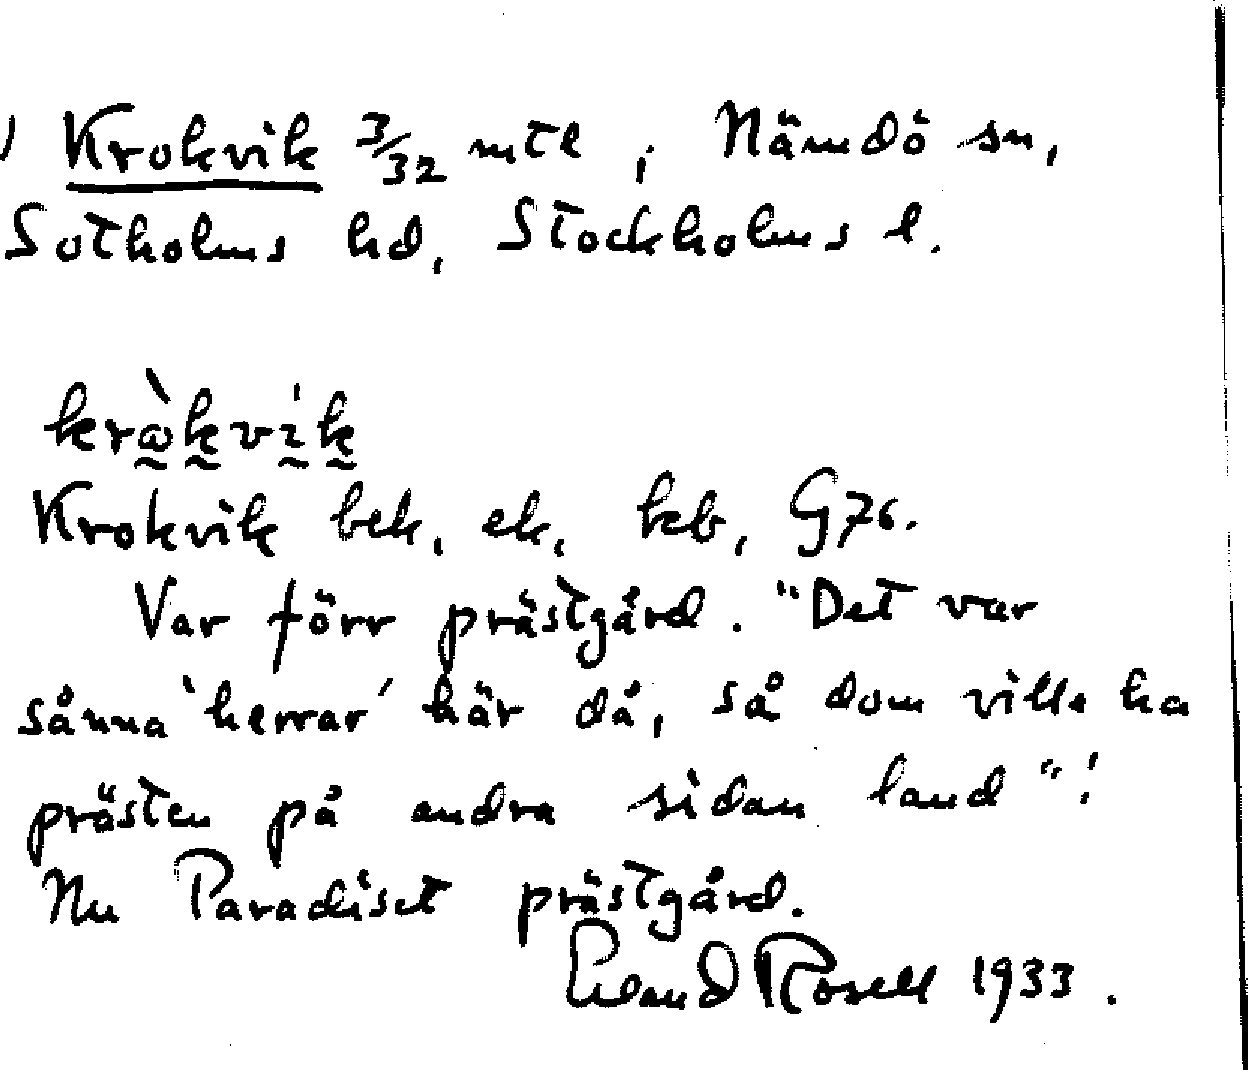 ) Krokvik 3/32 mtl, Nämdö sn,
Sotholms hd, Stockholms l.
kràkvík
Krokvik bek, ek, kb, G76.
Var förr prästgård. "Det var
sånna 'herrar' här då, så dom ville ha
prästen på andra sidan land"!
Nu Paradiset prästgård.
Erland Rosell 1933.